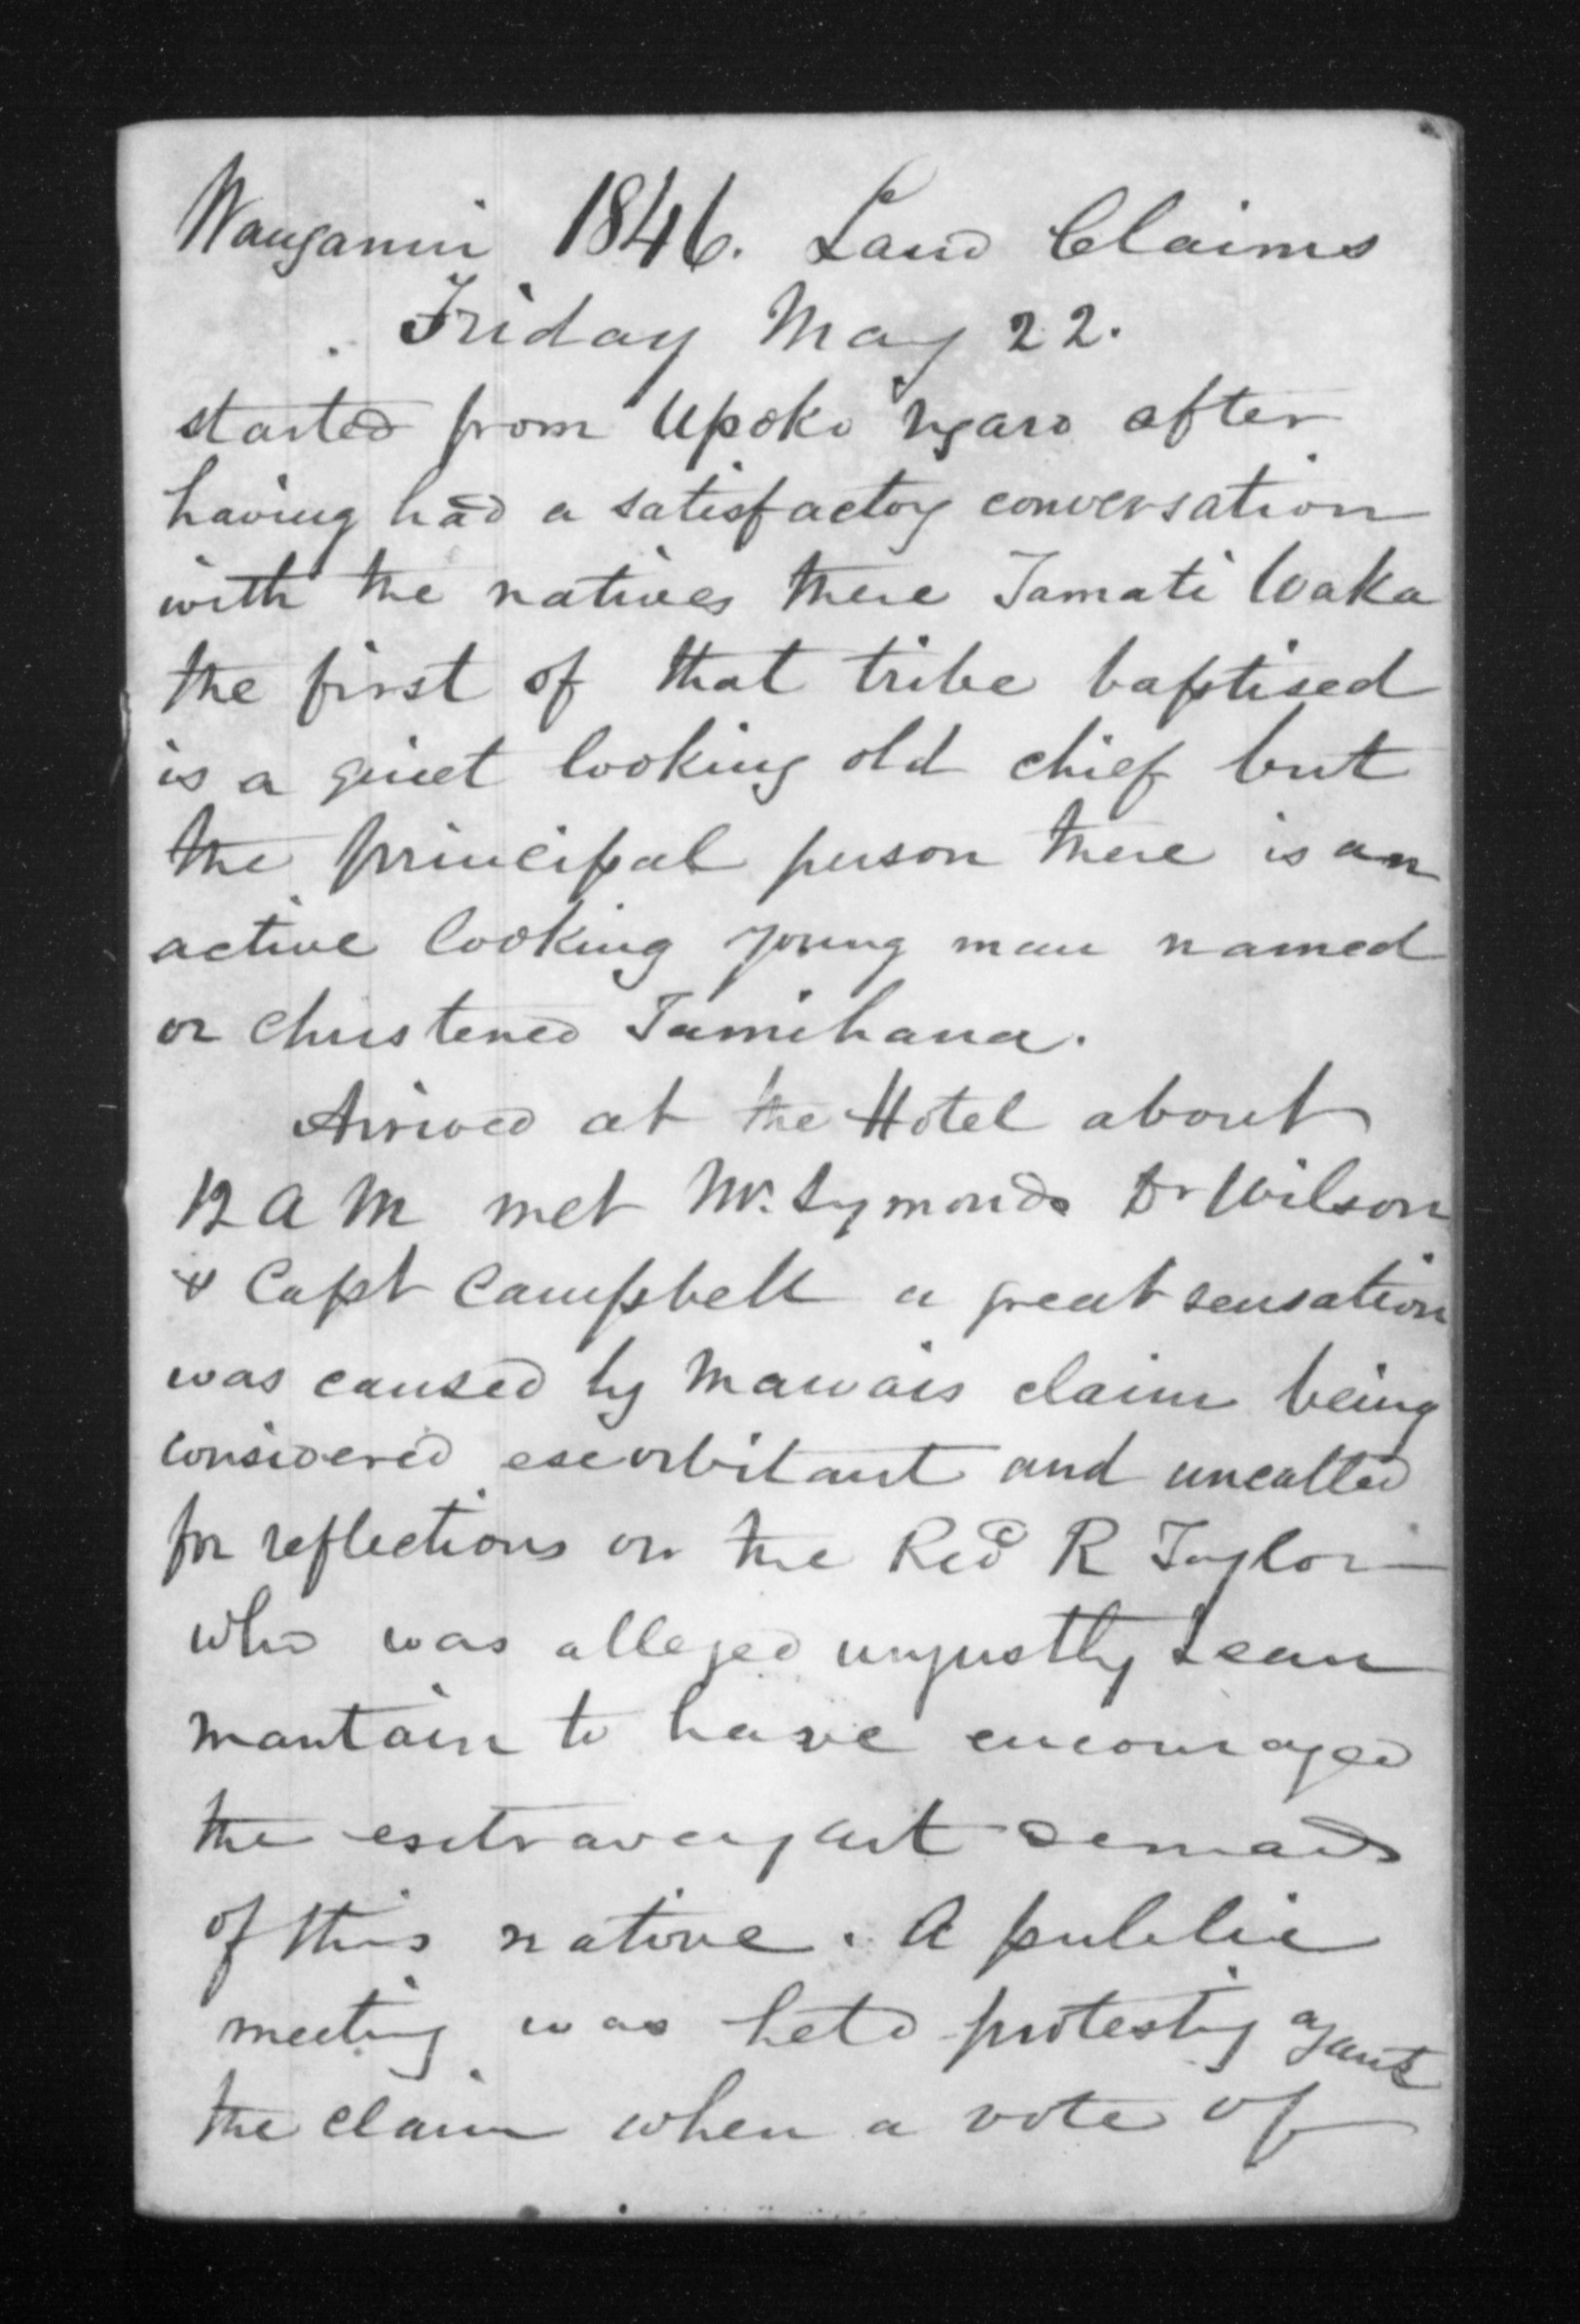 Wanganui 1846. Land Claims
Friday May 22.
started from Upoko ngaro after
having had a satisfactoy conversation
with the natives there Tamati Waka
the first of that tribe baptised
is a quiet looking old chief but
the principal person there is an
active looking young man named
or christened Tamihana.
Arrived at the Hotel about
12 A M met Mr. Symonds Dr Wilson
& Capt Campbell a great sensation
was caused by Mawais claim being
considered exorbitant and uncalled
for reflections on the Revd R Taylor
who was alleged unjustly I can
mantain to have encouraged
the extravagant demads
of this native. A public
meeting was held protestig agant
the claim when a vote of